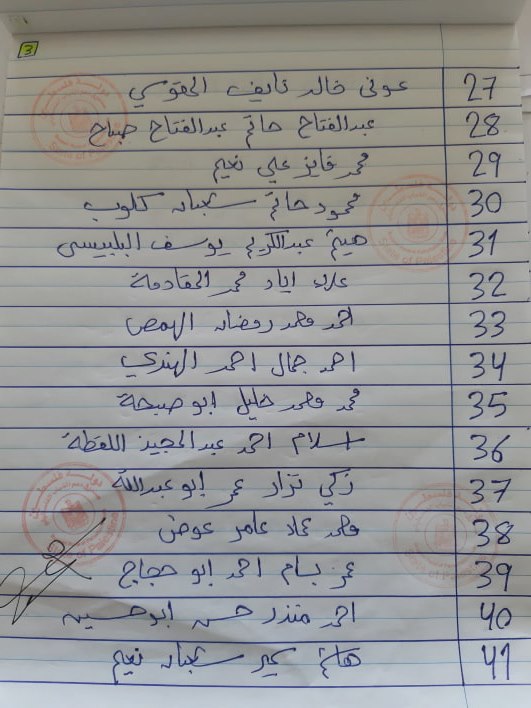 3
عوني خالد نايف الحقوسي 27
عبدالفتاح حاتم عبدالفتاح صباح 28
محمد فايز علي نعيم 29
محمود حاتم شعبان كلوب 30
هيثم عبدالكريم يوسف البلبيسي 31
علاء اياد محمد المقادمة 32
احمد محمد رمضان الهمص 33
احمد جمال احمد الهندي 34
محمد محمد خليل ابو صبحة 35
اسلام احمد عبدالمجيد اللقطة 36
زكي نزار عمر ابو عبدالله 37
محمد عماد عامر عوض 38
عمر بسام احمد ابو حجاج 39
احمد منذر حسن ابو حسين 40
هاشم شعبان نعيم 41
State of Palestine
State of Palestine